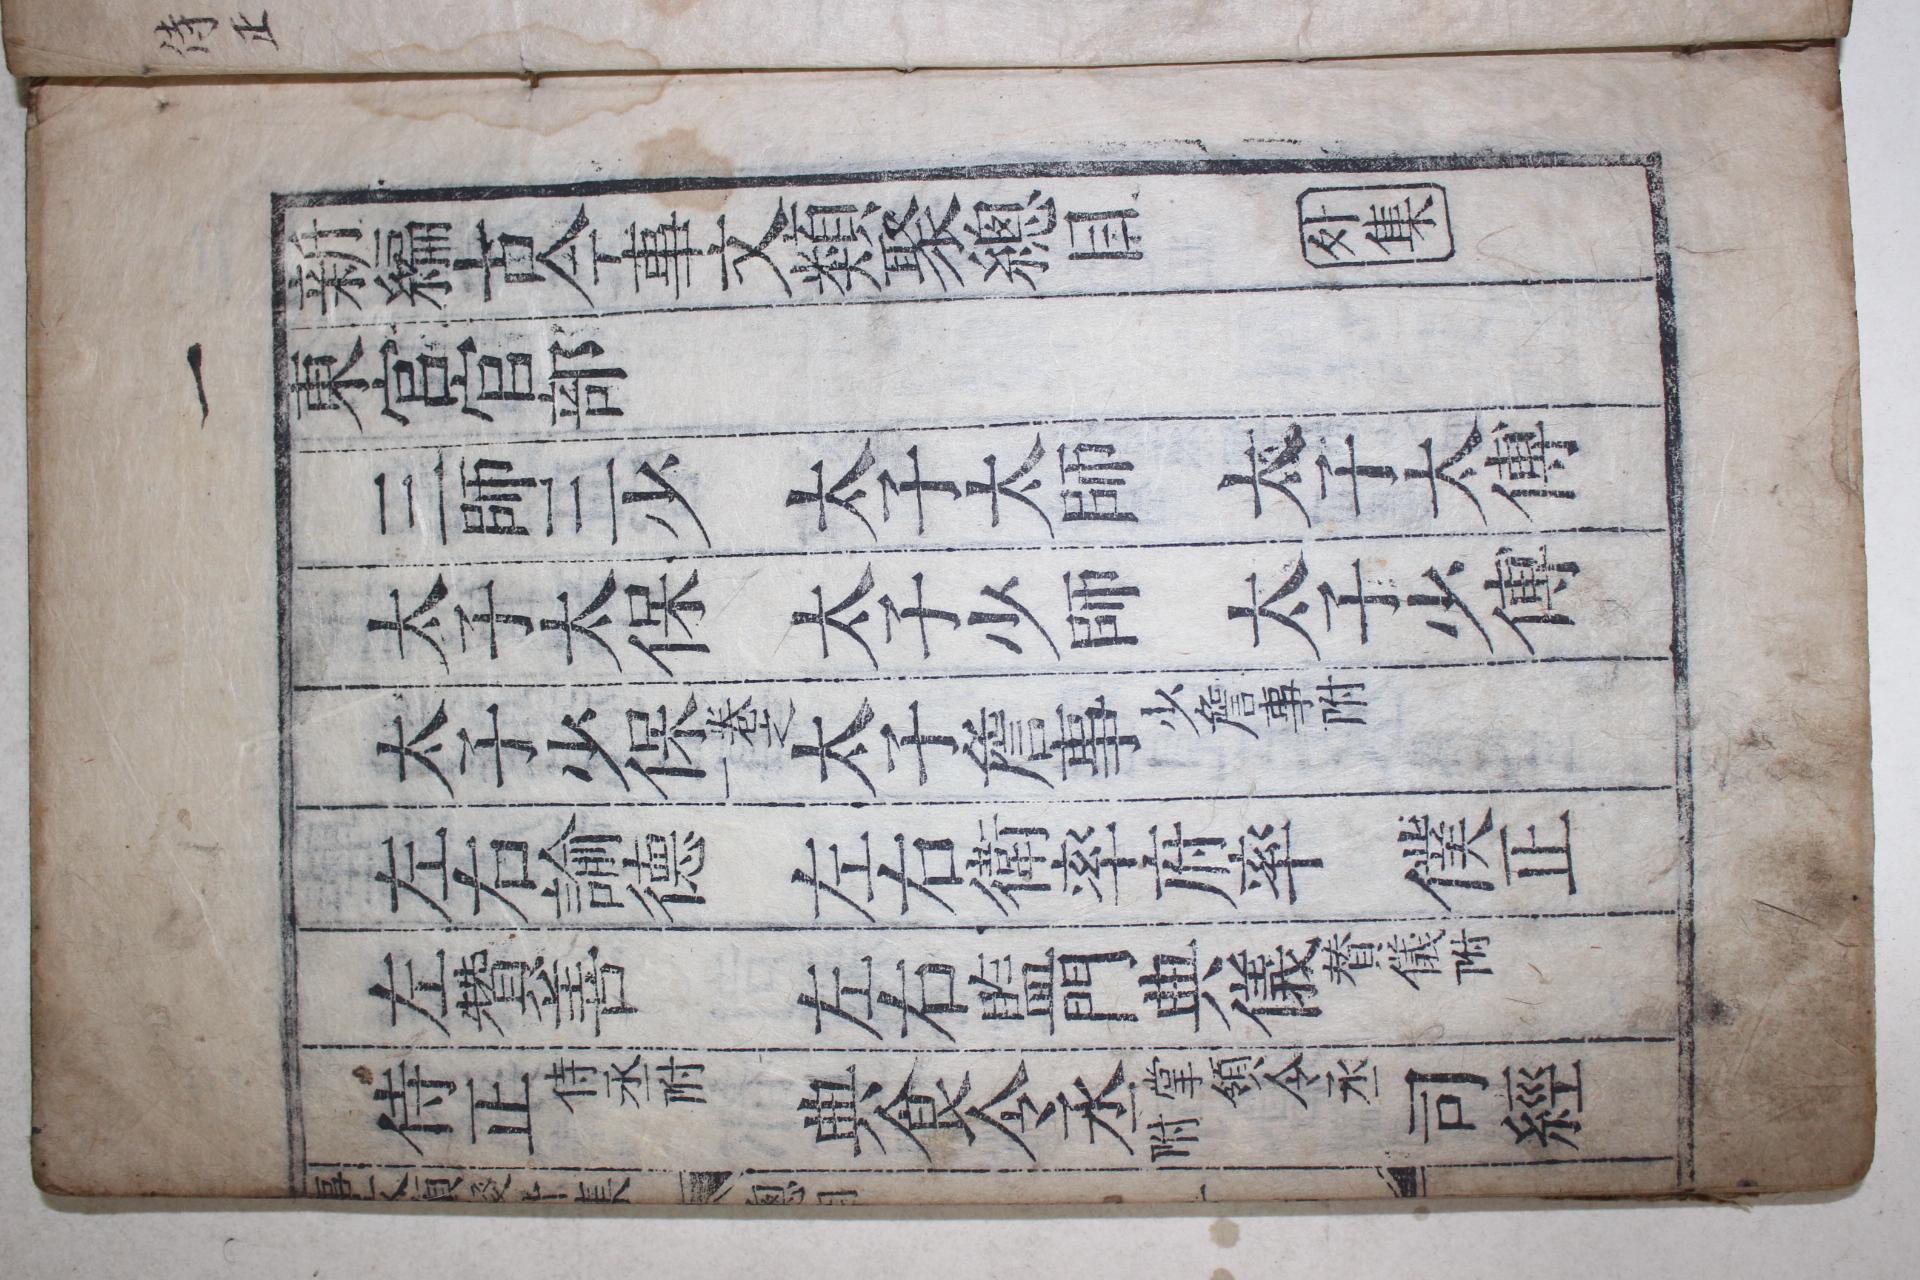 侍正
一
新編古今事文類聚總目 外集
東宮官部
三師三少 太子太師 太子太傅
太子太保 太子少師 太子少傅
太子少保卷之一 太子詹事少詹事附
左右諭德 左右衛率府率 僕正
左贊善 左右監門典儀賛儀附
侍正侍丞附 典食令丞掌領令丞附 司經